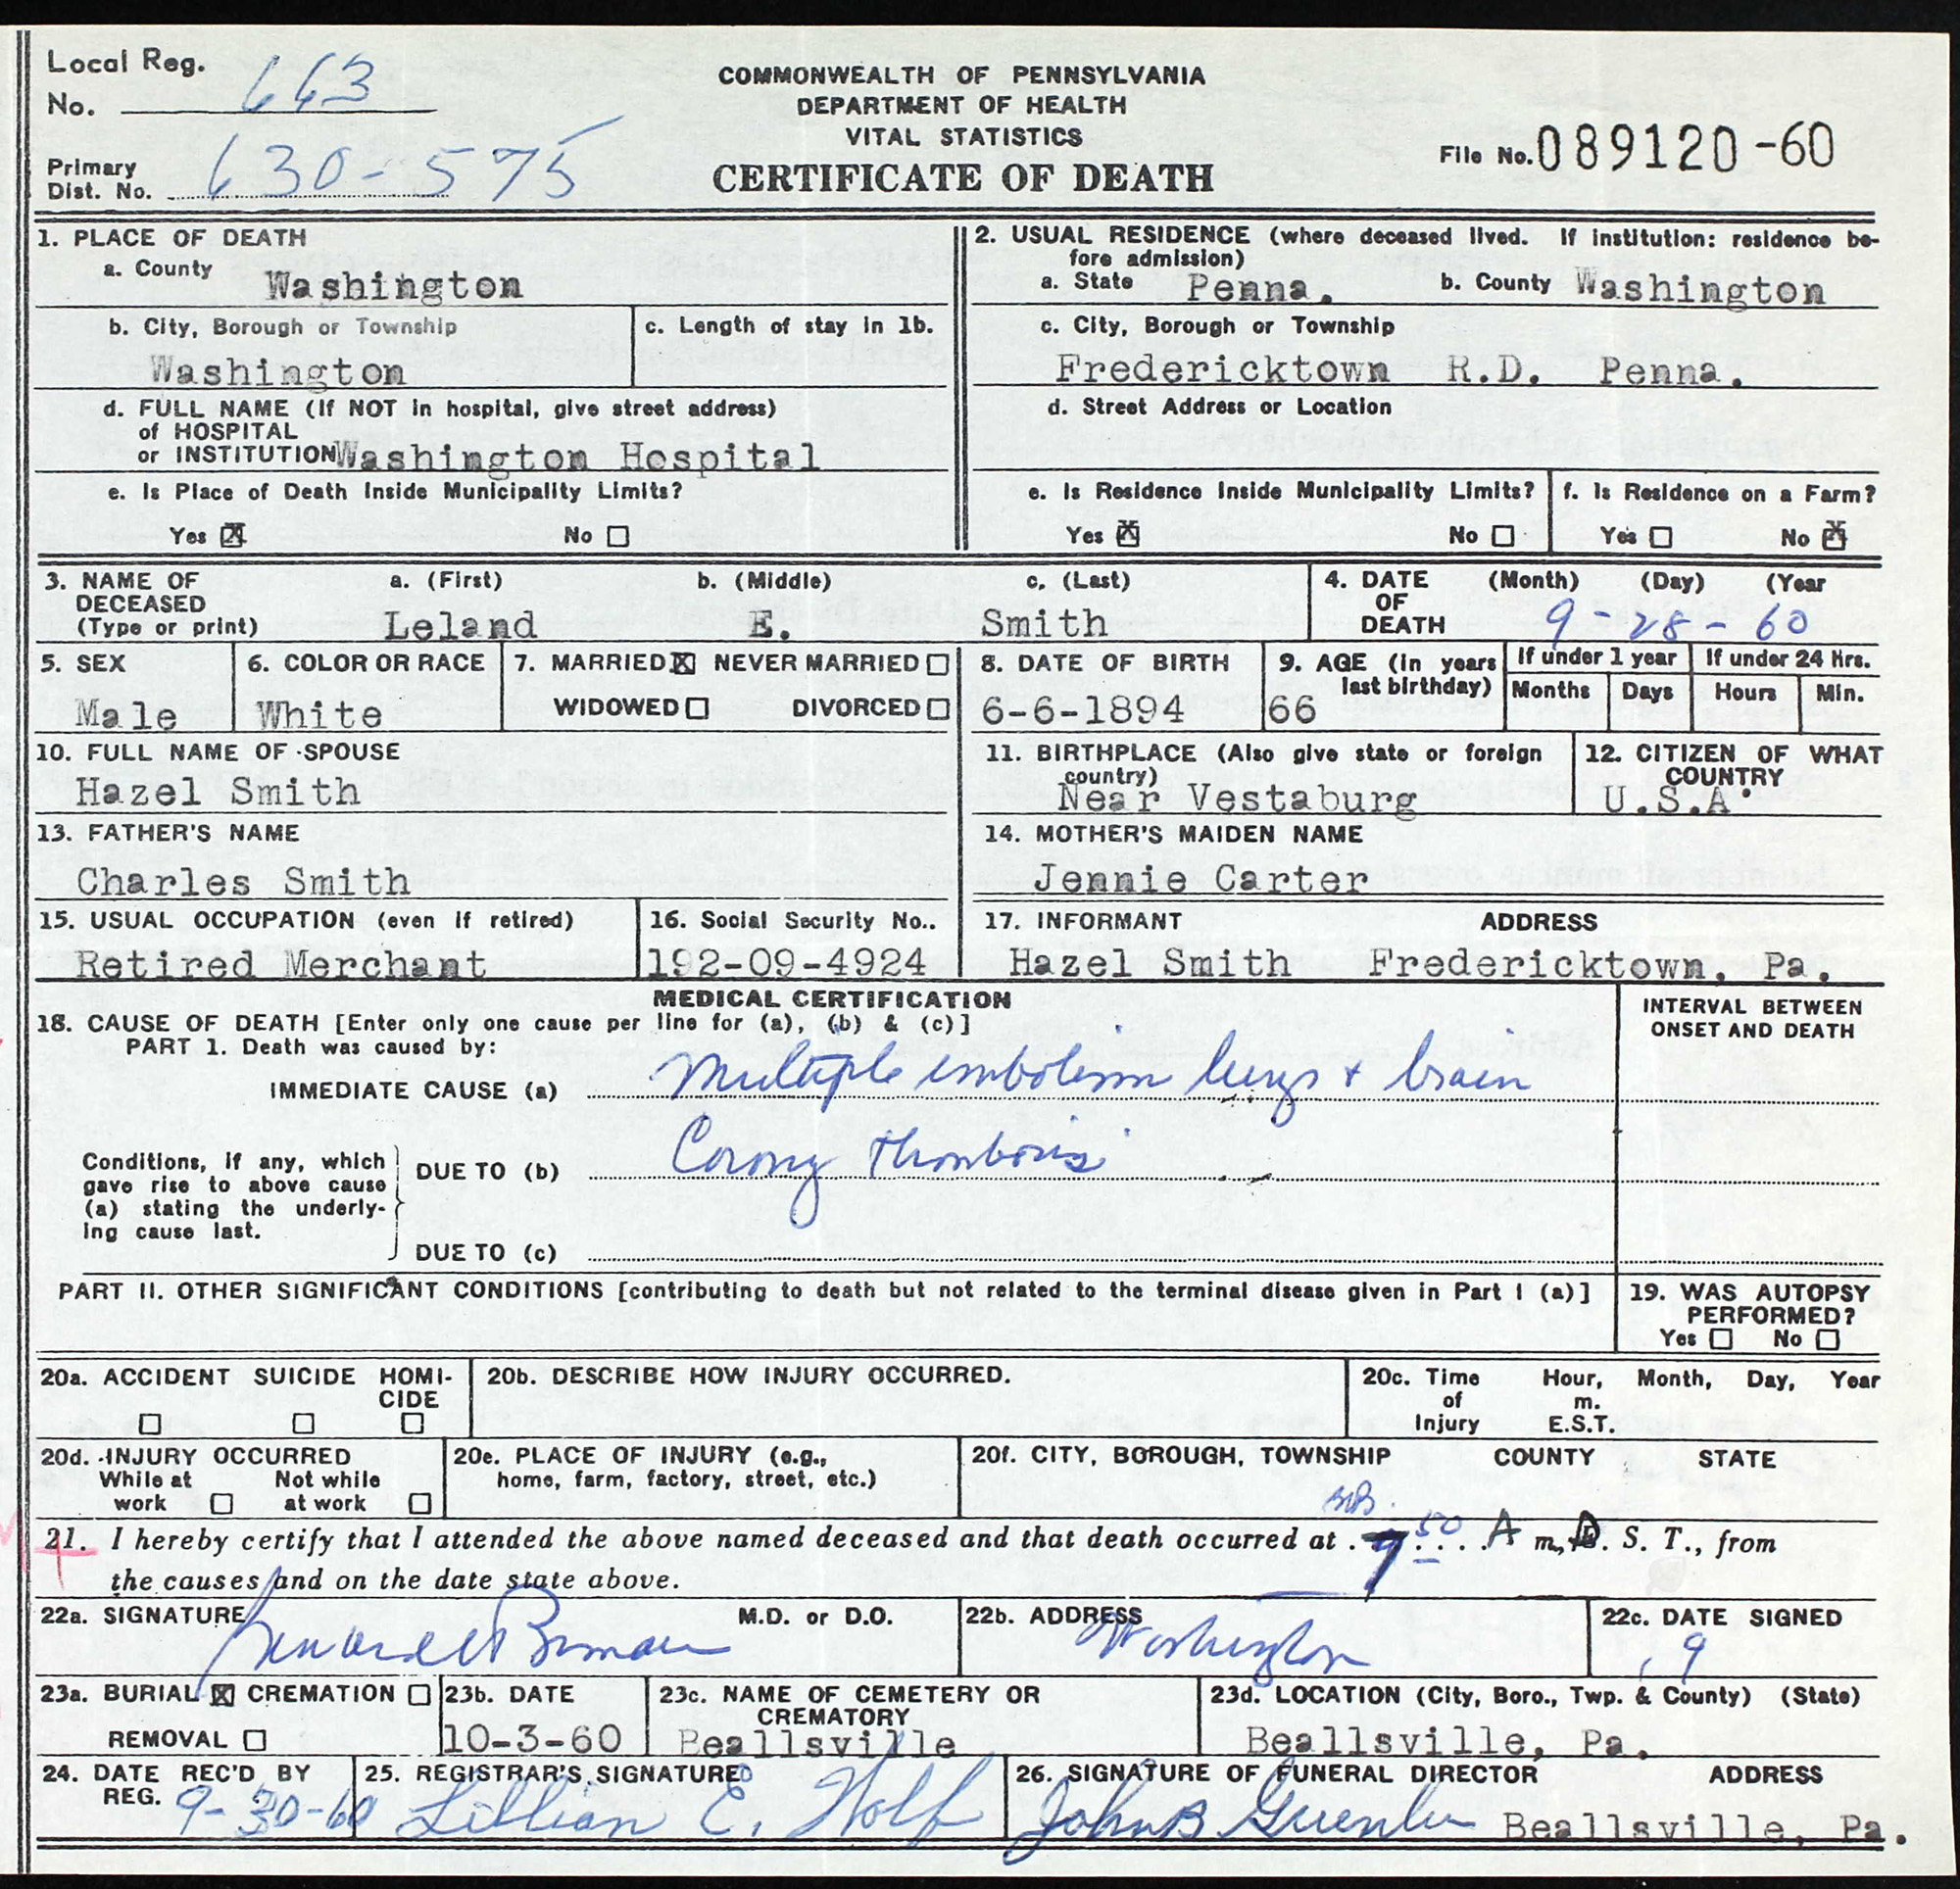 Local Reg.
No. 663
COMMONWEALTH OF PENNSYLVANIA
DEPARTMENT OF HEALTH
VITAL STATISTICS
CERTIFICATE OF DEATH
Primary
Dist. No. 630-575
File No. 089120-60
1. PLACE OF DEATH
a. County Washington
b. City, Borough or Township
Washington
c. Length of stay in 1b.
d. FULL NAME (If NOT in hospital, give street address)
of HOSPITAL
or INSTITUTION Washington Hospital
e. Is Place of Death Inside Municipality Limits?
Yes ☒ No ☐
2. USUAL RESIDENCE (where deceased lived. If institution: residence be-
fore admission)
a. State Penna. b. County Washington
c. City, Borough or Township
Fredericktown R.D. Penna.
d. Street Address or Location
e. Is Residence Inside Municipality Limits?
Yes ☒ No ☐
f. Is Residence on a Farm?
Yes ☐ No ☒
3. NAME OF DECEASED (Type or print)
a. (First) b. (Middle) c. (Last)
Leland E. Smith
4. DATE OF DEATH (Month) (Day) (Year
9-28-60
5. SEX
Male
6. COLOR OR RACE
White
7. MARRIED ☒ NEVER MARRIED ☐
WIDOWED ☐ DIVORCED ☐
8. DATE OF BIRTH
6-6-1894
9. AGE (In years
last birthday)
66
If under 1 year
Months Days
If under 24 Hrs.
Hours Min.
10. FULL NAME OF SPOUSE
Hazel Smith
11. BIRTHPLACE (Also give state or foreign
country)
Near Vestaburg
12. CITIZEN OF WHAT
COUNTRY
U.S.A.
13. FATHER'S NAME
Charles Smith
14. MOTHER'S MAIDEN NAME
Jennie Carter
15. USUAL OCCUPATION (even if retired)
Retired Merchant
16. Social Security No..
192-09-4924
17. INFORMANT ADDRESS
Hazel Smith Fredericktown, Pa.
MEDICAL CERTIFICATION
18. CAUSE OF DEATH [Enter only one cause per line for (a), (b) & (c)]
PART 1. Death was caused by:
INTERVAL BETWEEN
ONSET AND DEATH
IMMEDIATE CAUSE (a) Multiple embolism lungs + brain
Conditions, if any, which
gave rise to above cause
(a) stating the underly-
ing cause last.
DUE TO (b) Corony thrombosis
DUE TO (c)
PART II. OTHER SIGNIFICANT CONDITIONS [contributing to death but not related to the terminal disease given in Part I (a)]
19. WAS AUTOPSY
PERFORMED?
Yes ☐ No ☐
20a. ACCIDENT SUICIDE HOMI-
CIDE
☐ ☐ ☐
20b. DESCRIBE HOW INJURY OCCURRED.
20c. Time Hour, Month, Day, Year
of m.
Injury E.S.T.
20d. INJURY OCCURRED
While at Not while
work ☐ at work ☐
20e. PLACE OF INJURY (e.g.,
home, farm, factory, street, etc.)
20f. CITY, BOROUGH, TOWNSHIP COUNTY STATE
21. I hereby certify that I attended the above named deceased and that death occurred at 7 50 A m, D. S. T., from
the causes and on the date state above.
22a. SIGNATURE M.D. or D.O.
22b. ADDRESS
Washington
22c. DATE SIGNED
9
23a. BURIAL ☒ CREMATION ☐
REMOVAL ☐
23b. DATE
10-3-60
23c. NAME OF CEMETERY OR
CREMATORY
Beallsville
23d. LOCATION (City, Boro., Twp. & County) (State)
Beallsville, Pa.
24. DATE REC'D BY
REG. 9-30-60
25. REGISTRAR'S SIGNATURE
Lillian E. Wolf
26. SIGNATURE OF FUNERAL DIRECTOR ADDRESS
John B Beallsville, Pa.